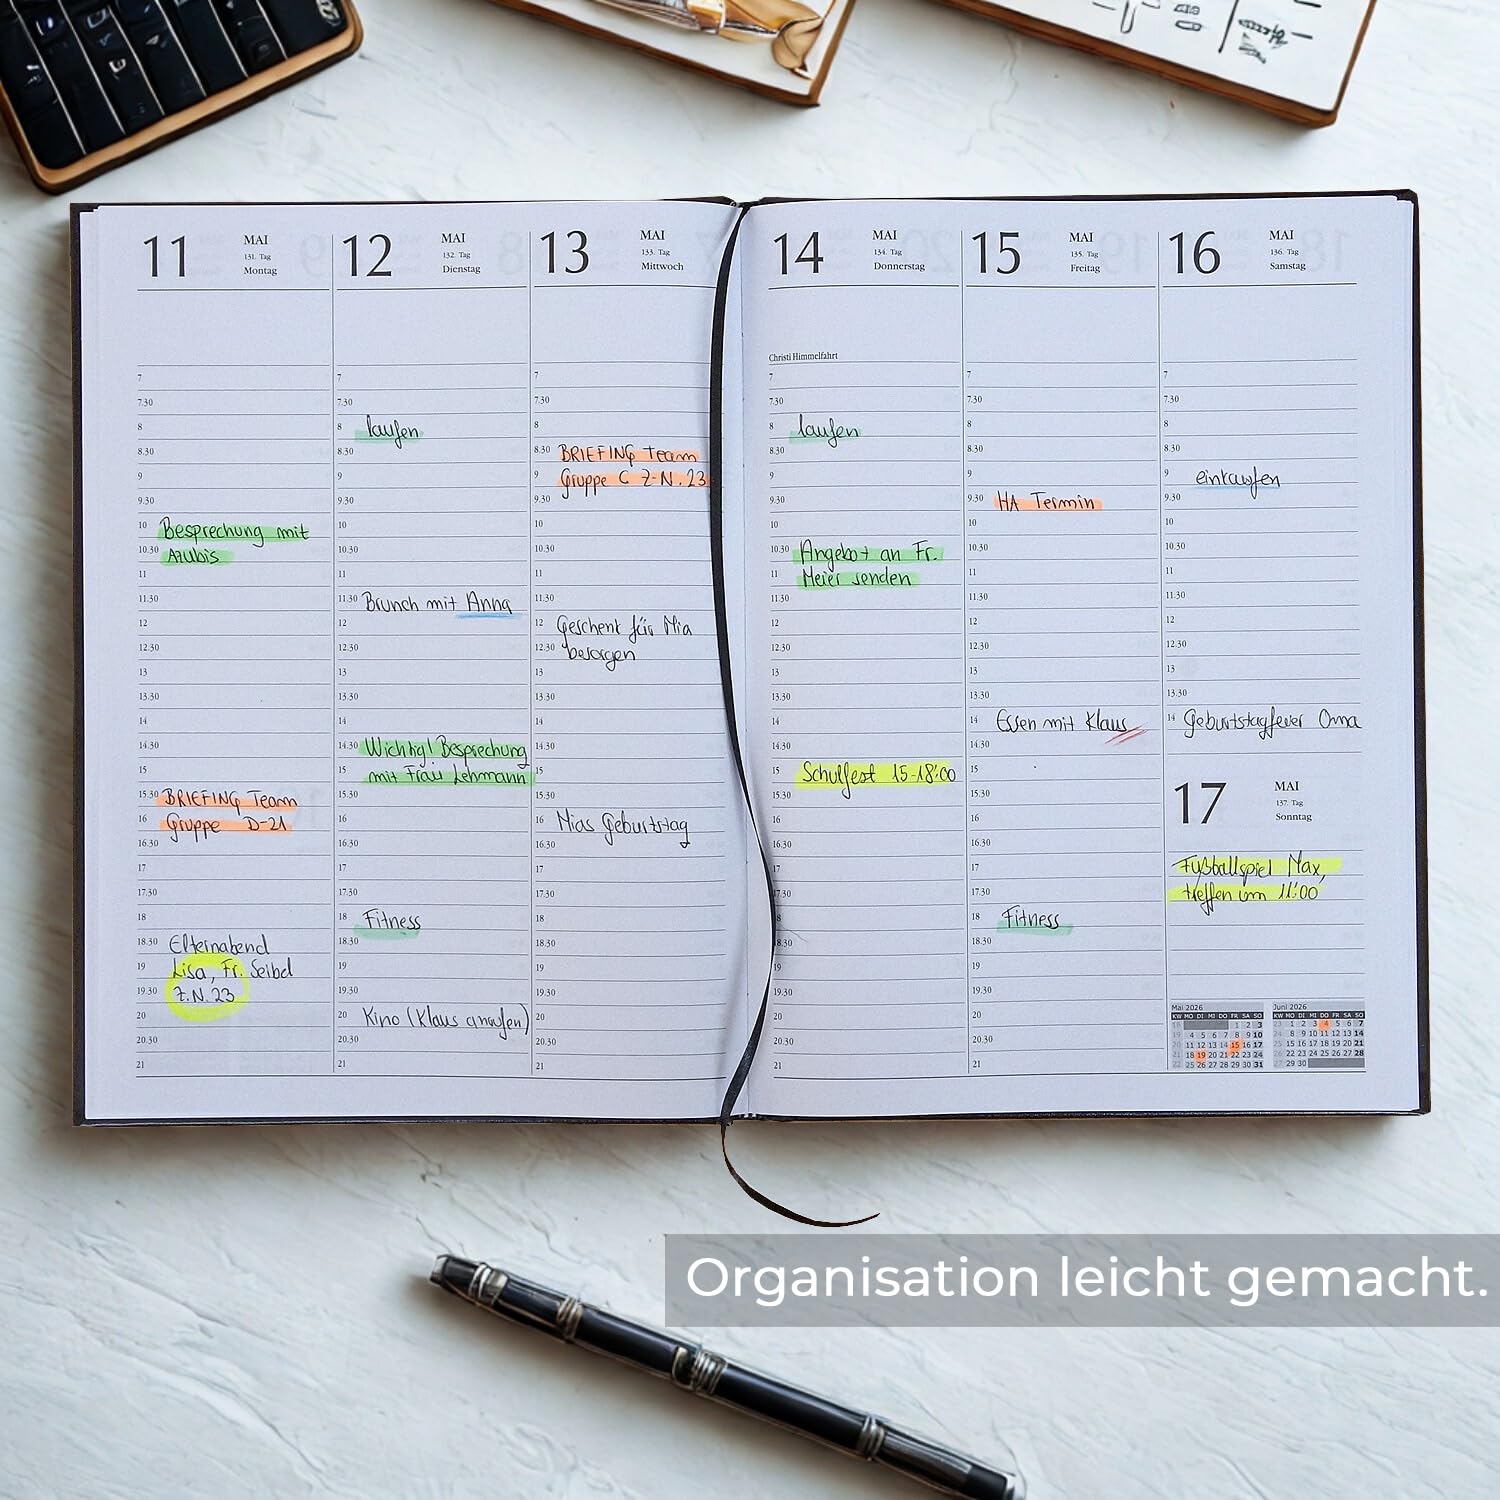 11
MAI
131. Tag
Montag
7
7.30
8
8.30
9
9.30
10 Besprechung mit
10.30 Azubis
11
11.30
12
12.30
13
13.30
14
14.30
15
15.30 BRIEFING Team
16 Gruppe D-21
16.30
17
17.30
18
18.30 Elternabend
19 Lisa, Fr. Seibel
19.30 Z.N. 23
20
20.30
21
12
MAI
132. Tag
Dienstag
7
7.30
8 laufen
8.30
9
9.30
10
10.30
11
11.30 Brunch mit Anna
12
12.30
13
13.30
14
14.30 Wichtig! Besprechung
15 mit Frau Lehmann
15.30
16
16.30
17
17.30
18 Fitness
18.30
19
19.30
20 Kino (Klaus anrufen)
20.30
21
13
MAI
133. Tag
Mittwoch
7
7.30
8
8.30 BRIEFING Team
9 Gruppe C Z-N. 23
9.30
10
10.30
11
11.30
12 Geschenk für Mia
12.30 besorgen
13
13.30
14
14.30
15
15.30
16 Mias Geburtstag
16.30
17
17.30
18
18.30
19
19.30
20
20.30
21
14
MAI
134. Tag
Donnerstag
Christi Himmelfahrt
7
7.30
8 laufen
8.30
9
9.30
10
10.30 Angebot an Fr.
11 Meier senden
11.30
12
12.30
13
13.30
14
14.30
15 Schulfest 15-18:00
15.30
16
16.30
17
17.30
18
18.30
19
19.30
20
20.30
21
15
MAI
135. Tag
Freitag
7
7.30
8
8.30
9
9.30 HA Termin
10
10.30
11
11.30
12
12.30
13
13.30
14 Essen mit Klaus
14.30
15
15.30
16
16.30
17
17.30
18 Fitness
18.30
19
19.30
20
20.30
21
16
MAI
136. Tag
Samstag
7
7.30
8
8.30
9 einkaufen
9.30
10
10.30
11
11.30
12
12.30
13
13.30
14 Geburtstagfeier Oma
17
MAI
137. Tag
Sonntag
Fußballspiel Max,
treffen um 11:00
Mai 2026
KW MO DI MI DO FR SA SO
18 1 2 3
19 4 5 6 7 8 9 10
20 11 12 13 14 15 16 17
21 18 19 20 21 22 23 24
22 25 26 27 28 29 30 31
Juni 2026
KW MO DI MI DO FR SA SO
23 1 2 3 4 5 6 7
24 8 9 10 11 12 13 14
25 15 16 17 18 19 20 21
26 22 23 24 25 26 27 28
27 29 30
Organisation leicht gemacht.